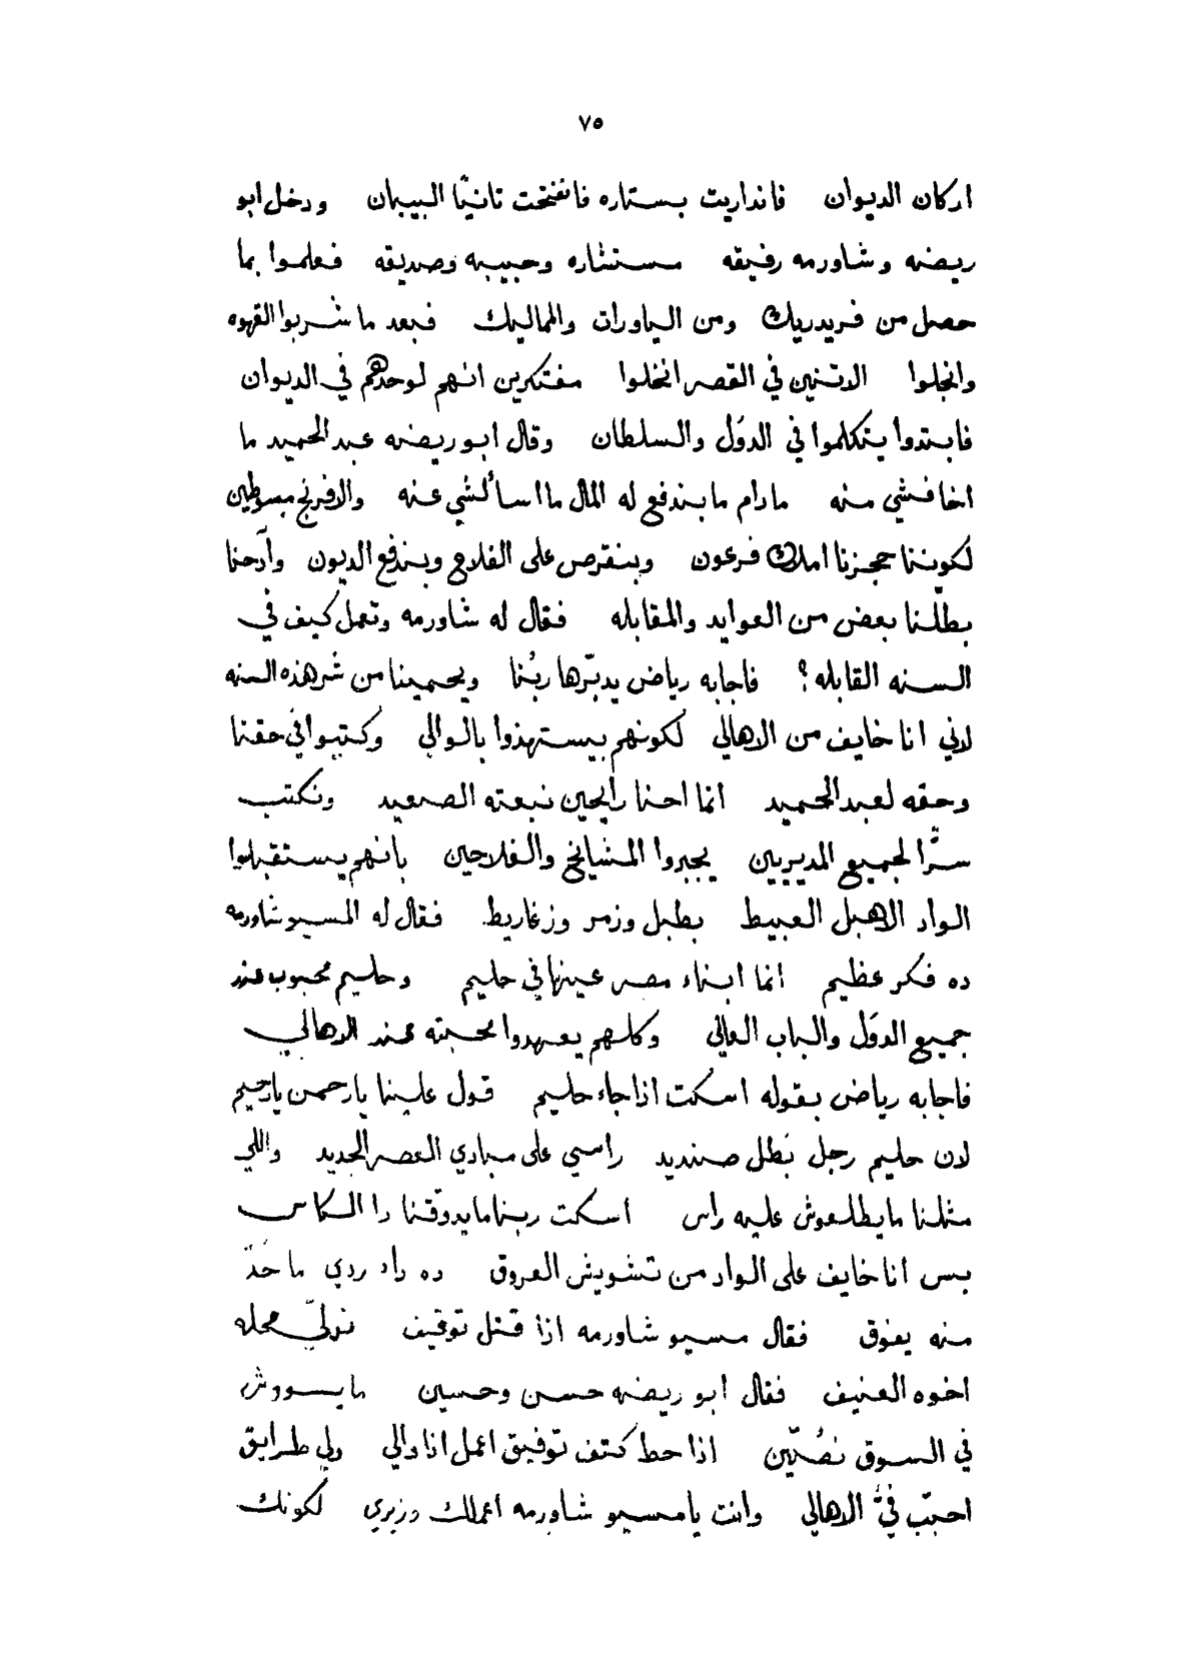 ٧٥
اركان الديوان فانداريت بستاره فانفتحت تانيًا البيبان ودخل ابو
ريضه وشاورمه رفيقه مستشاره وحبيبه وصديقه فعلموا بما
حصل من فريدريك ومن الياوران والمماليك فبعد ما شربوا القهوه
وانجلوا الاتنين في القصر انخلوا مفتكرين انهم لوحدهم في الديوان
فابتدوا يتكلموا في الدوَل والسلطان وقال ابو ريضه عبد الحميد ما
اخافشي منه مادام ما بندفع له المال ما اسألشي عنه والافرنج مبسوطين
لكوننا حجزنا املاك فرعون وبنقرص على الفلاح وبندفع الديون وآدحنا
بطّلنا بعض من العوايد والمقابله فقال له شاورمه وتعمل كيف في
السنه القابله؟ فاجابه رياض يدبّرها ربُنا ويحمينا من شر هذه السنه
لاني انا خايف من الاهالي لكونهم بيستهذوا بالوالي وكتبوا في حقنا
وحقه لعبد الحميد انما احنا رايحين نبعته الصعيد ونكتب
سرًّا لجميع المديريين يجبروا المشايخ والفلاحين بانهم يستقبلوا
الواد الاهبل العبيط بطبل وزمر وزغاريط فقال له المسيو شاورمه
ده فكر عظيم انما ابناء مصر عينها في حليم وحليم محبوب عند
جميع الدوَل والباب العالي وكلهم يعهدوا محبته عند الاهالي
فاجابه رياض بقوله اسكت اذا جاء حليم قول علينا يا رحمن يا رحيم
لان حليم رجل بَطل صنديد راسي على مبادي العصر الجديد واللي
مثلنا ما يطلعوش عليه راس اسكت ربنا ما يدوّقنا دا الكاس
بس انا خايف على الواد من تشويش العروق ده داء ردي ما حَدّ
منه يفوق فقال مسيو شاورمه اذا قتل توفيق نولّي محله
اخوه العنيف فقال ابو ريضه حسن وحسين ما يسووش
في السوق نصُّين اذا حط كتف توفيق اعمل انا والي ولي طرايق
احبّب فيَّ الاهالي وانت يا مسيو شاورمه اعملك وزيري لكونك